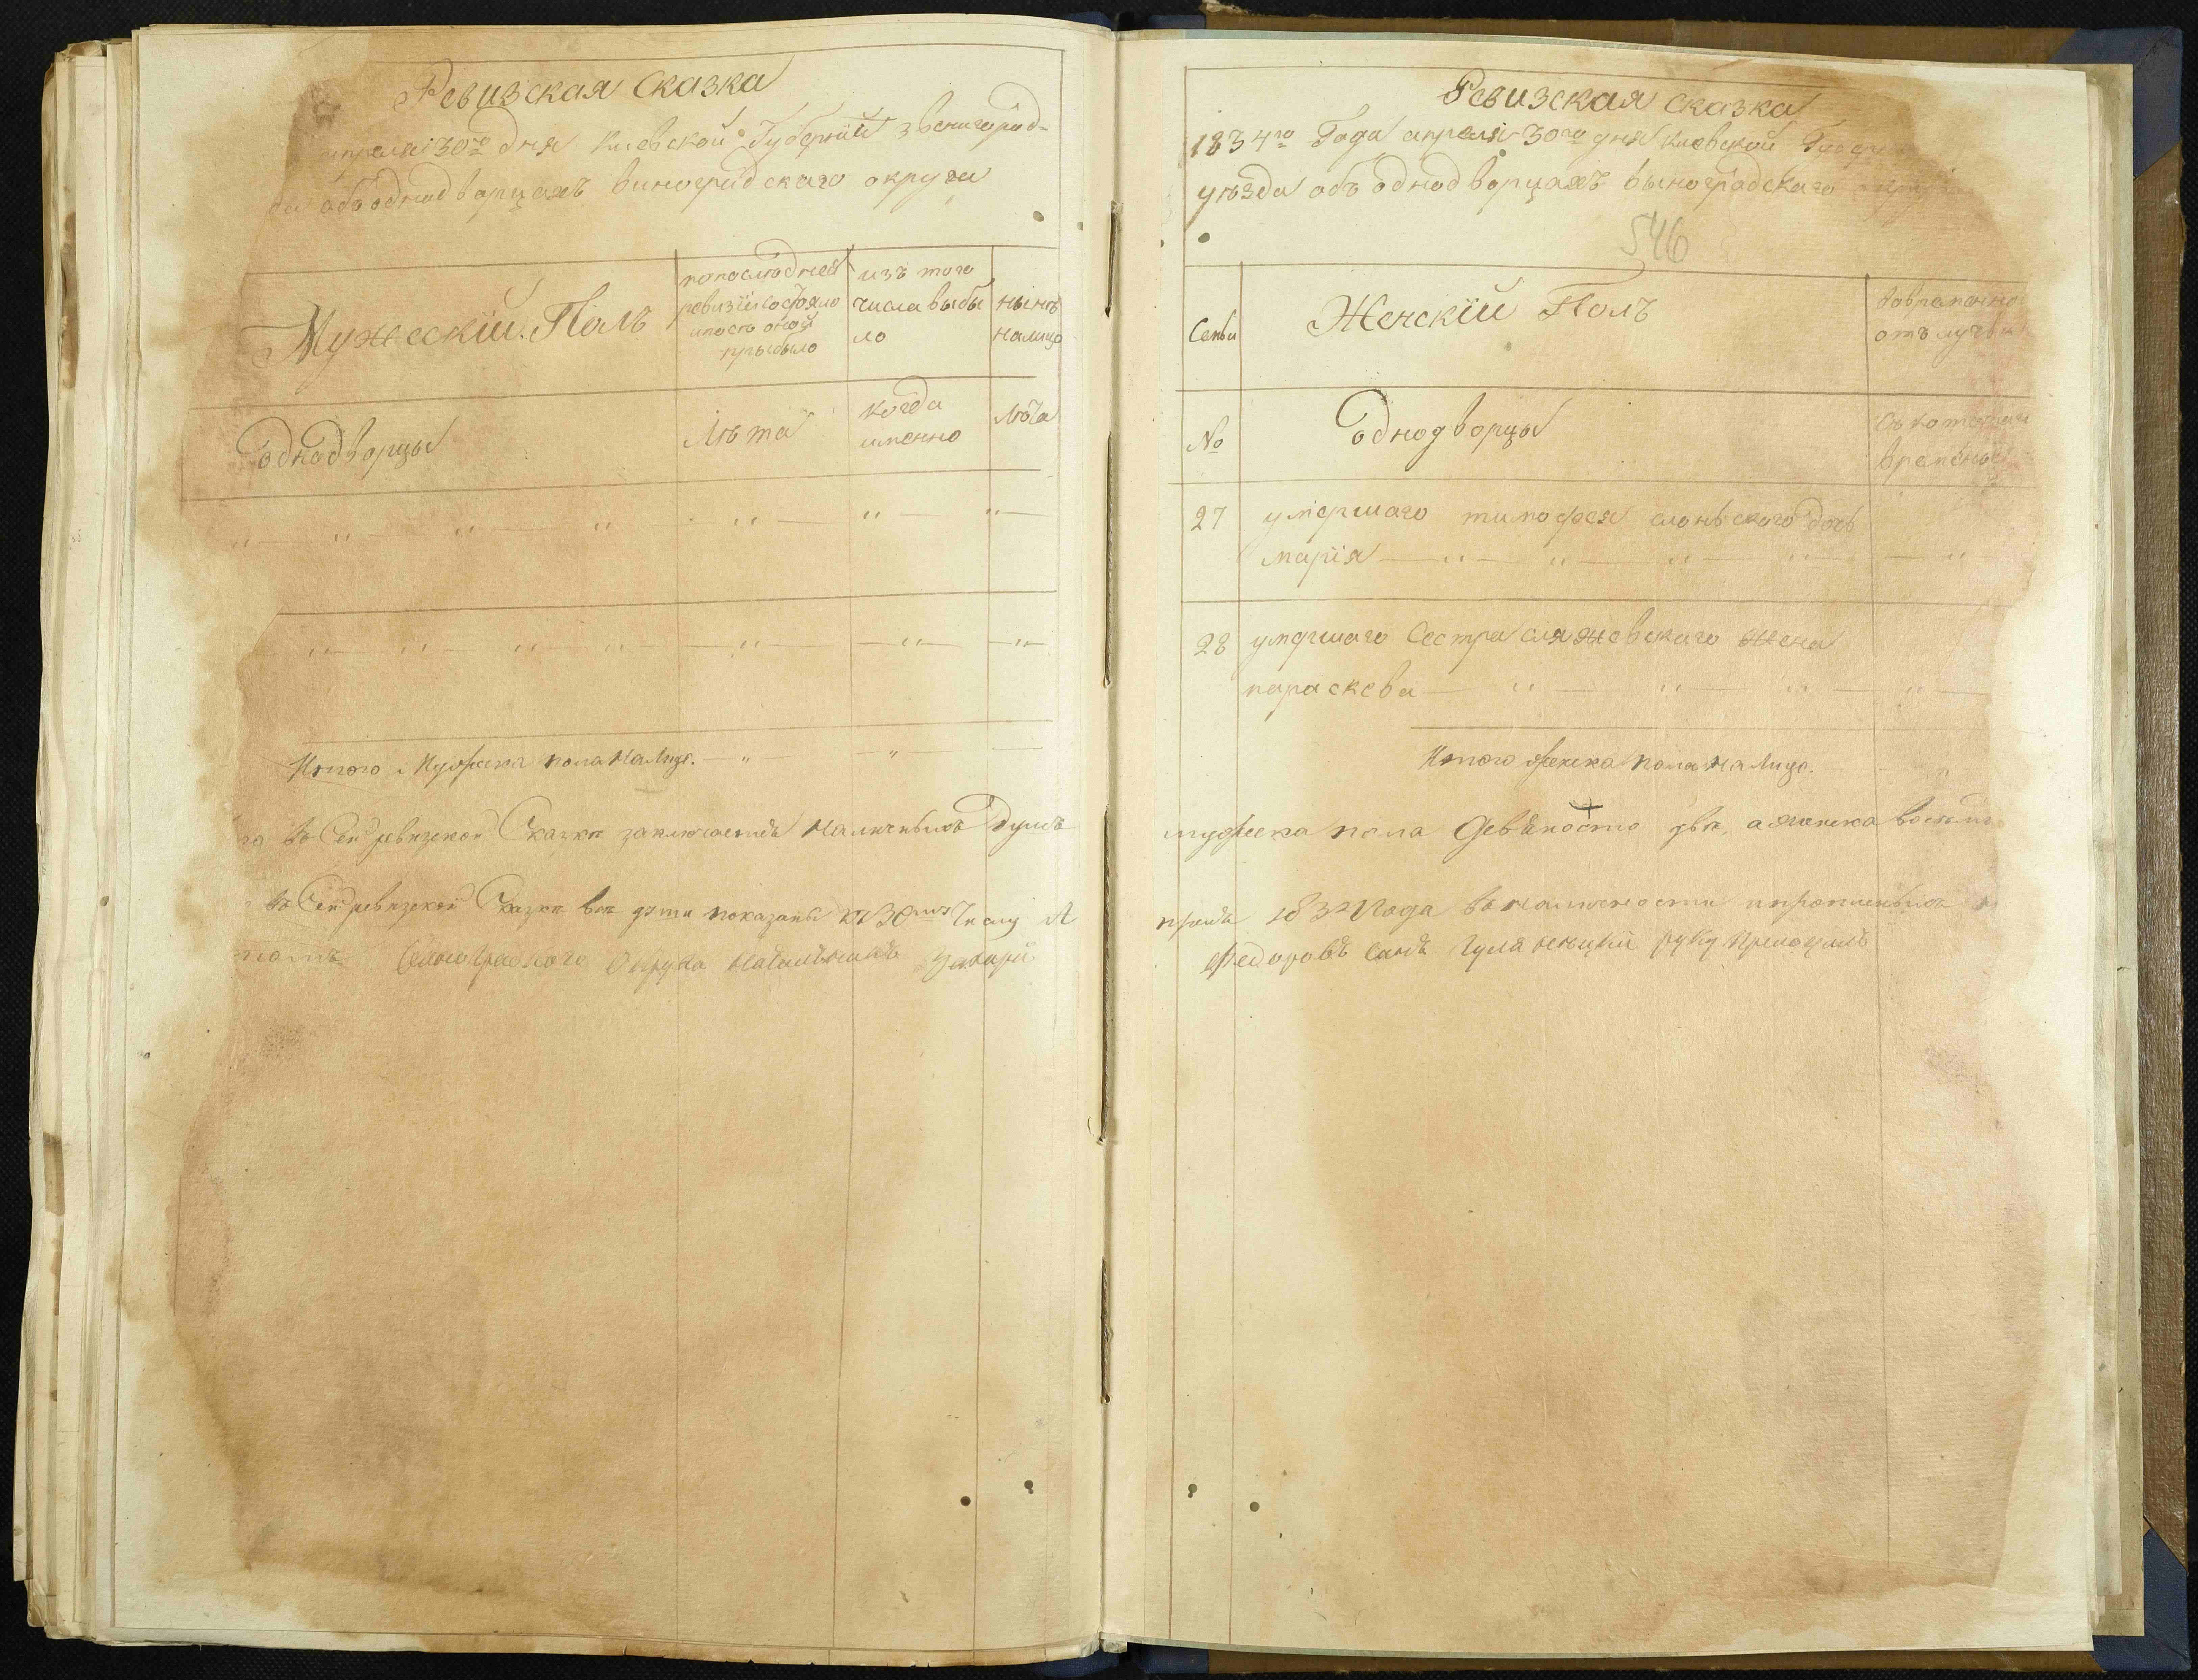 Ревизская сказка
апреля 30го дня Киевской Губернїи звенигород-
да объ однодворцахъ виноградскаго округи
Мужескїй Полъ
попоследней
ревизїи состояло
ипослѣ оной
прыбыло
изъ того
числа выбы
ло
нынѣ
налицо
однодворцы
Лѣта
когда
именно
Лѣта
Итого Мужеска пола на Лице.
въ Сей ревизской Сказкѣ заключается Наличныхъ Душъ
въ Сей ревизской Сказкѣ все дети показаны къ 30му Числу А
Округа Начальникъ Захарїй
Ревизская сказка
1834го Года апреля 30го дня киевской
уѣзда объ однодворцахъ выноградскаго
546
Семьи
Женскїй Полъ
вовременно
отлучки
№
однодворцы
Съ котораго
времены
27 умершаго тимофея слоньского дочь
марїя
28 умершаго Сестра сляжевскаго Жена
параскева
Итого женска пола на Лице.
мужеска пола Девѣносто два, а женска
1834 Года въ наличности
Федоровъ Сынъ руку Приложилъ